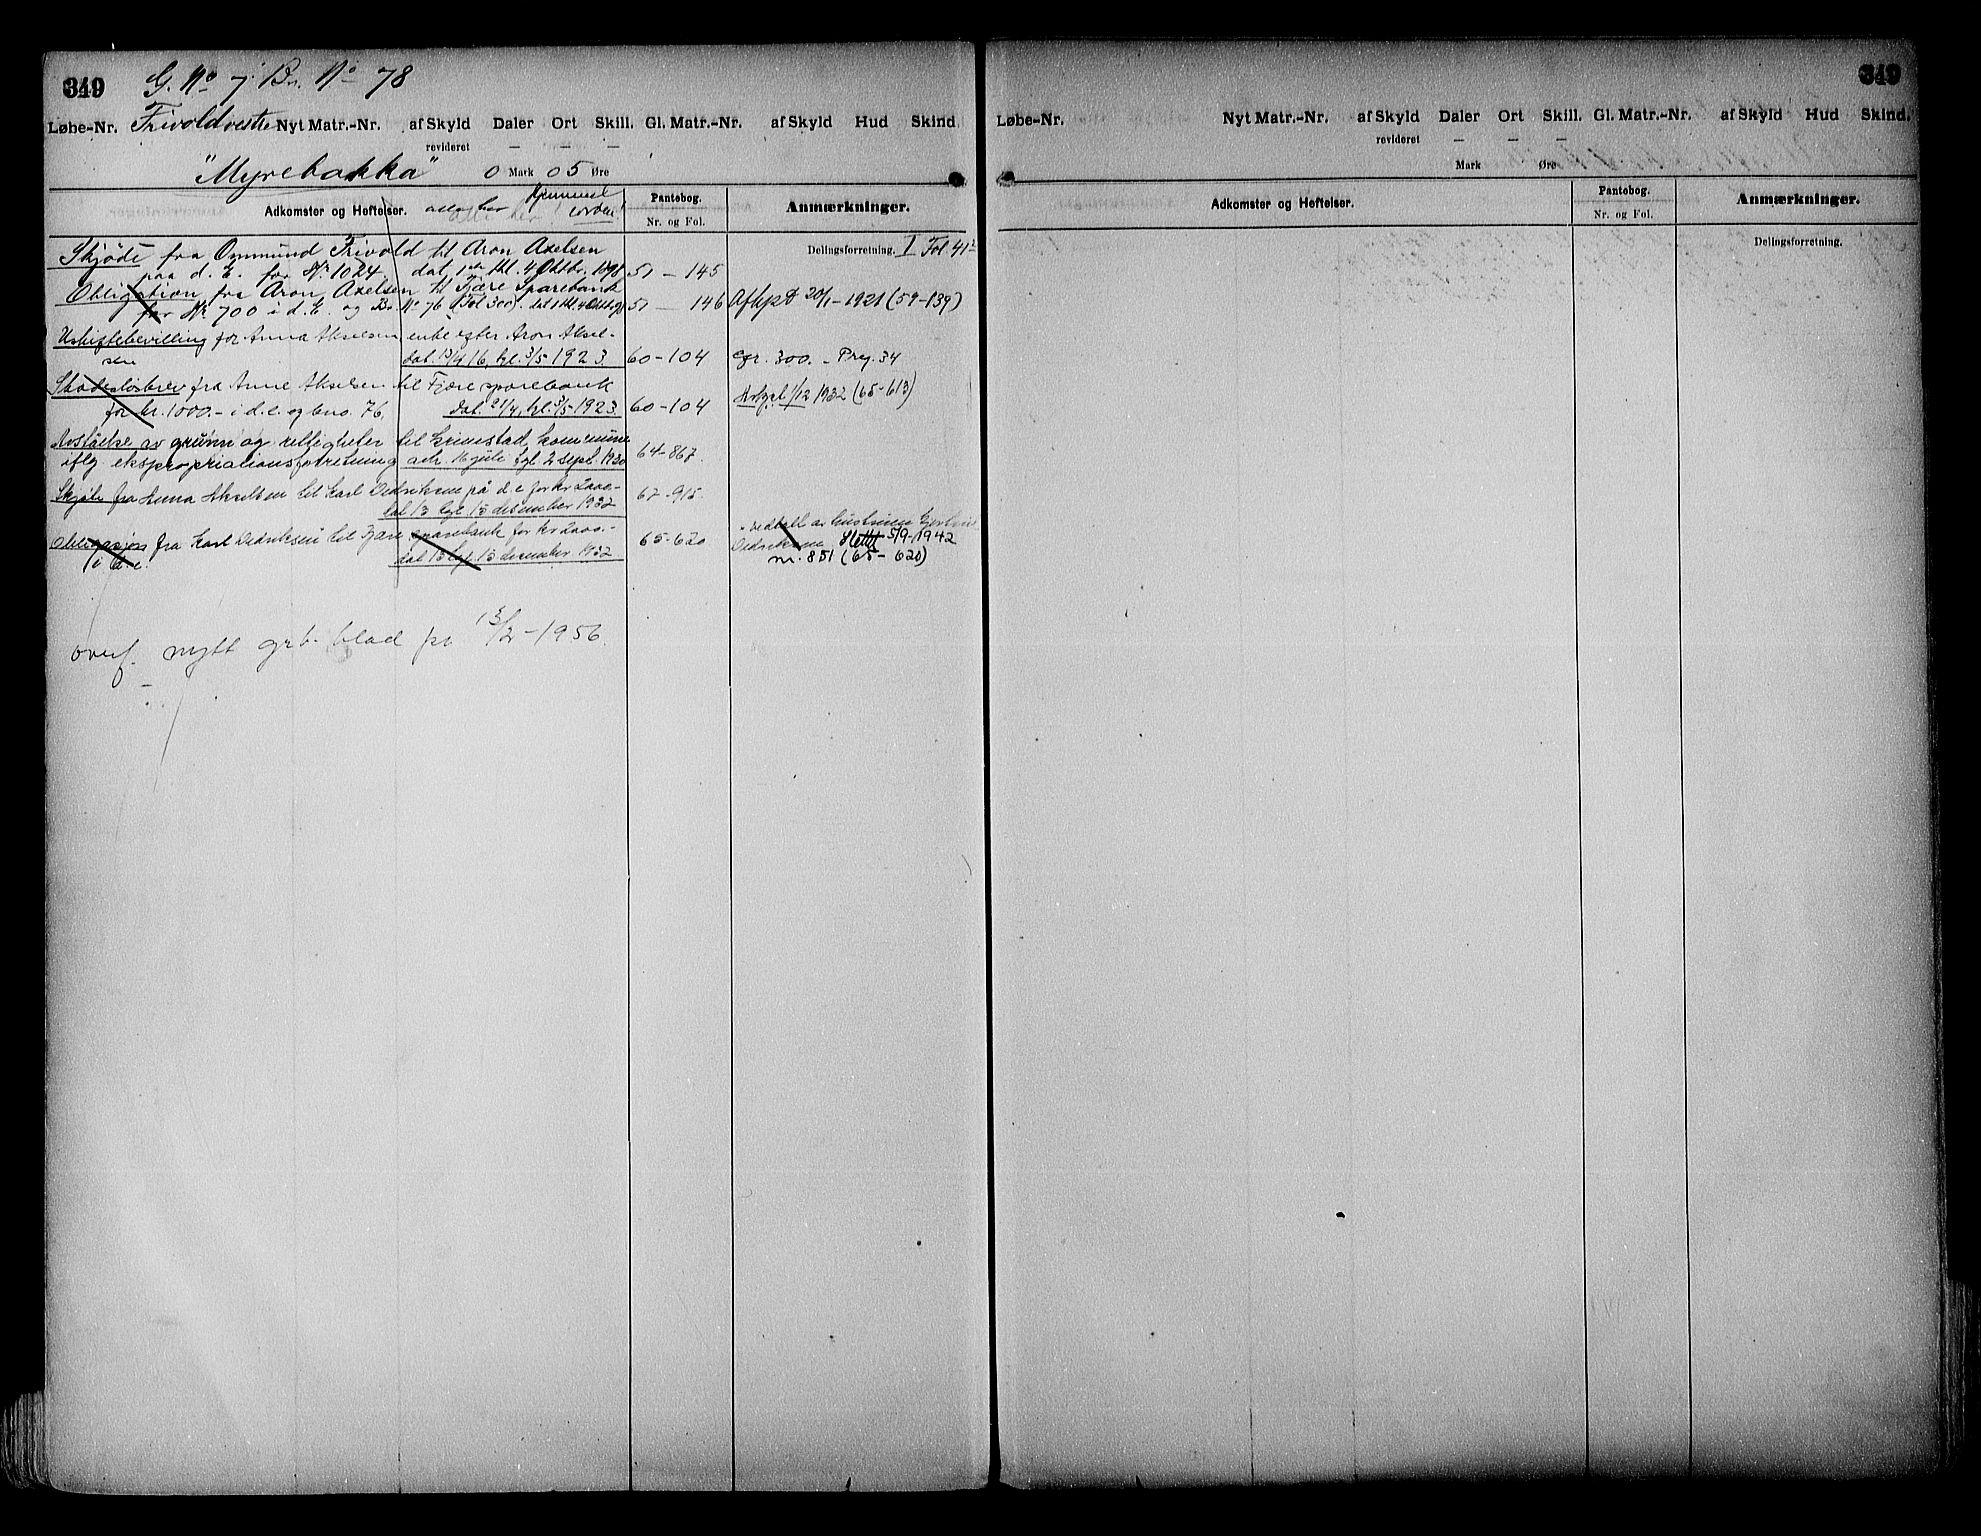 349 G. No 7 Br. No 78
Løbe-Nr. Frivoldvestre Nyt Matr.-Nr. af Skyld Daler Ort Skill. Gl. Matr.-Nr. af Skyld Hud Skind
revideret — — —
"Myrebakka" 0 Mark 05 Øre
Adkomster og Heftelser.
Pantebog.
Nr. og Fol.
Anmærkninger.
Skjøde fra Ommund Frivold til Aron Axelsen
Delingsforretning. I Fol 412
paa d. E. for Kr 1024. dat. 1ste thl. 4 Oktbr. 1898 51 — 145
Obligation fra Aron Axelsen til Fjære Sparebank
for Kr. 700 i d. E. og Br. No 76 (Fol 300). dat 1 thl 4 Oktb 98 51 — 146 Afhpt 20/1 - 1921 (59-139)
Uskiftebevilling for Anna Akselsen enke efter Aron Aksel-
sen dat. 13/4 16, tgl. 3/5 1923. 60-104 Egr. 300. - Prg. 34
Skadesløsbrev fra Anne Akselsen til Fjære sparebank
for kr. 1000.- i d.e. og bno. 76, dat. 21/4, tgl. 3/5-1923. 60-104 Avlyst 1/12 1932 (65-613)
Avståelse av grunn og rettigheter til Grimstad kommune
iflg. ekspropriationsforretning avh. 16 juli tgl. 2 sept. 1930 64-867.
Skjøte fra Anna Akselsen til Karl Dedriksen på d e for kr 2000.-
dat 13 tgl 15 desember 1932 67-915.
Obligasjon fra Karl Dedriksen til Fjære sparebank for kr 2000.-
i d. e. dat 13 tgl. 15 desember 1932. 65-620
vedtatt av hustruen
Dedriksen Slettet 5/9-1942
nr. 851 (65-620)
overf. nytt grb. blad pr 13/2-1956.
349
Løbe-Nr. Nyt Matr.-Nr. af Skyld Daler Ort Skill. Gl. Matr.-Nr. af Skyld Hud Skind.
revideret — — —
Mark Øre
Adkomster og Heftelser.
Pantebog.
Nr. og Fol.
Anmærkninger.
Delingsforretning.